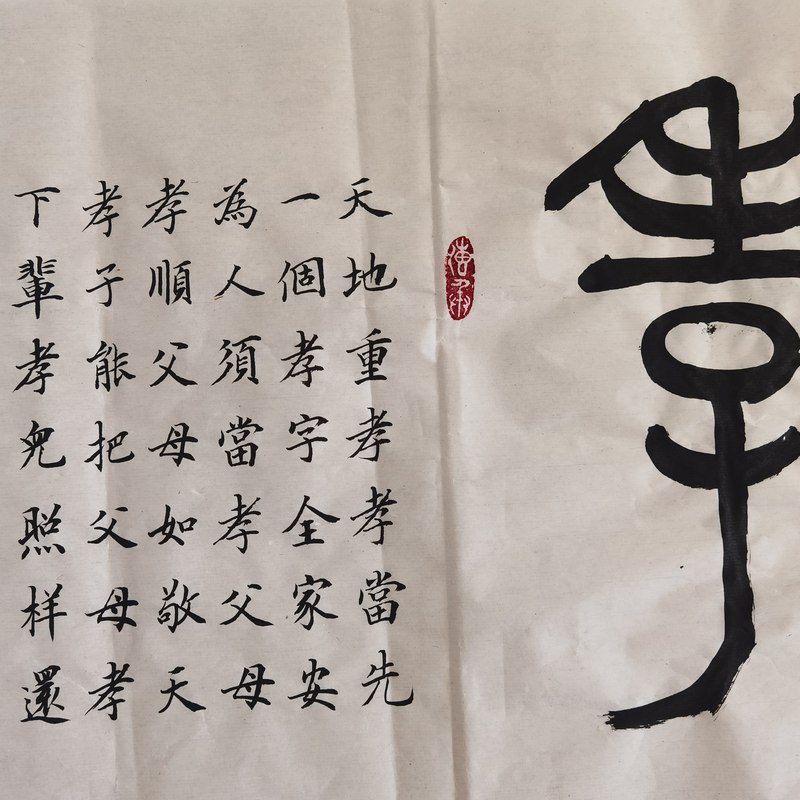 孝
傳承
天地重孝孝當先
一個孝字全家安
為人須當孝父母
孝順父母如敬天
孝子能把父母孝
下輩孝兒照样還